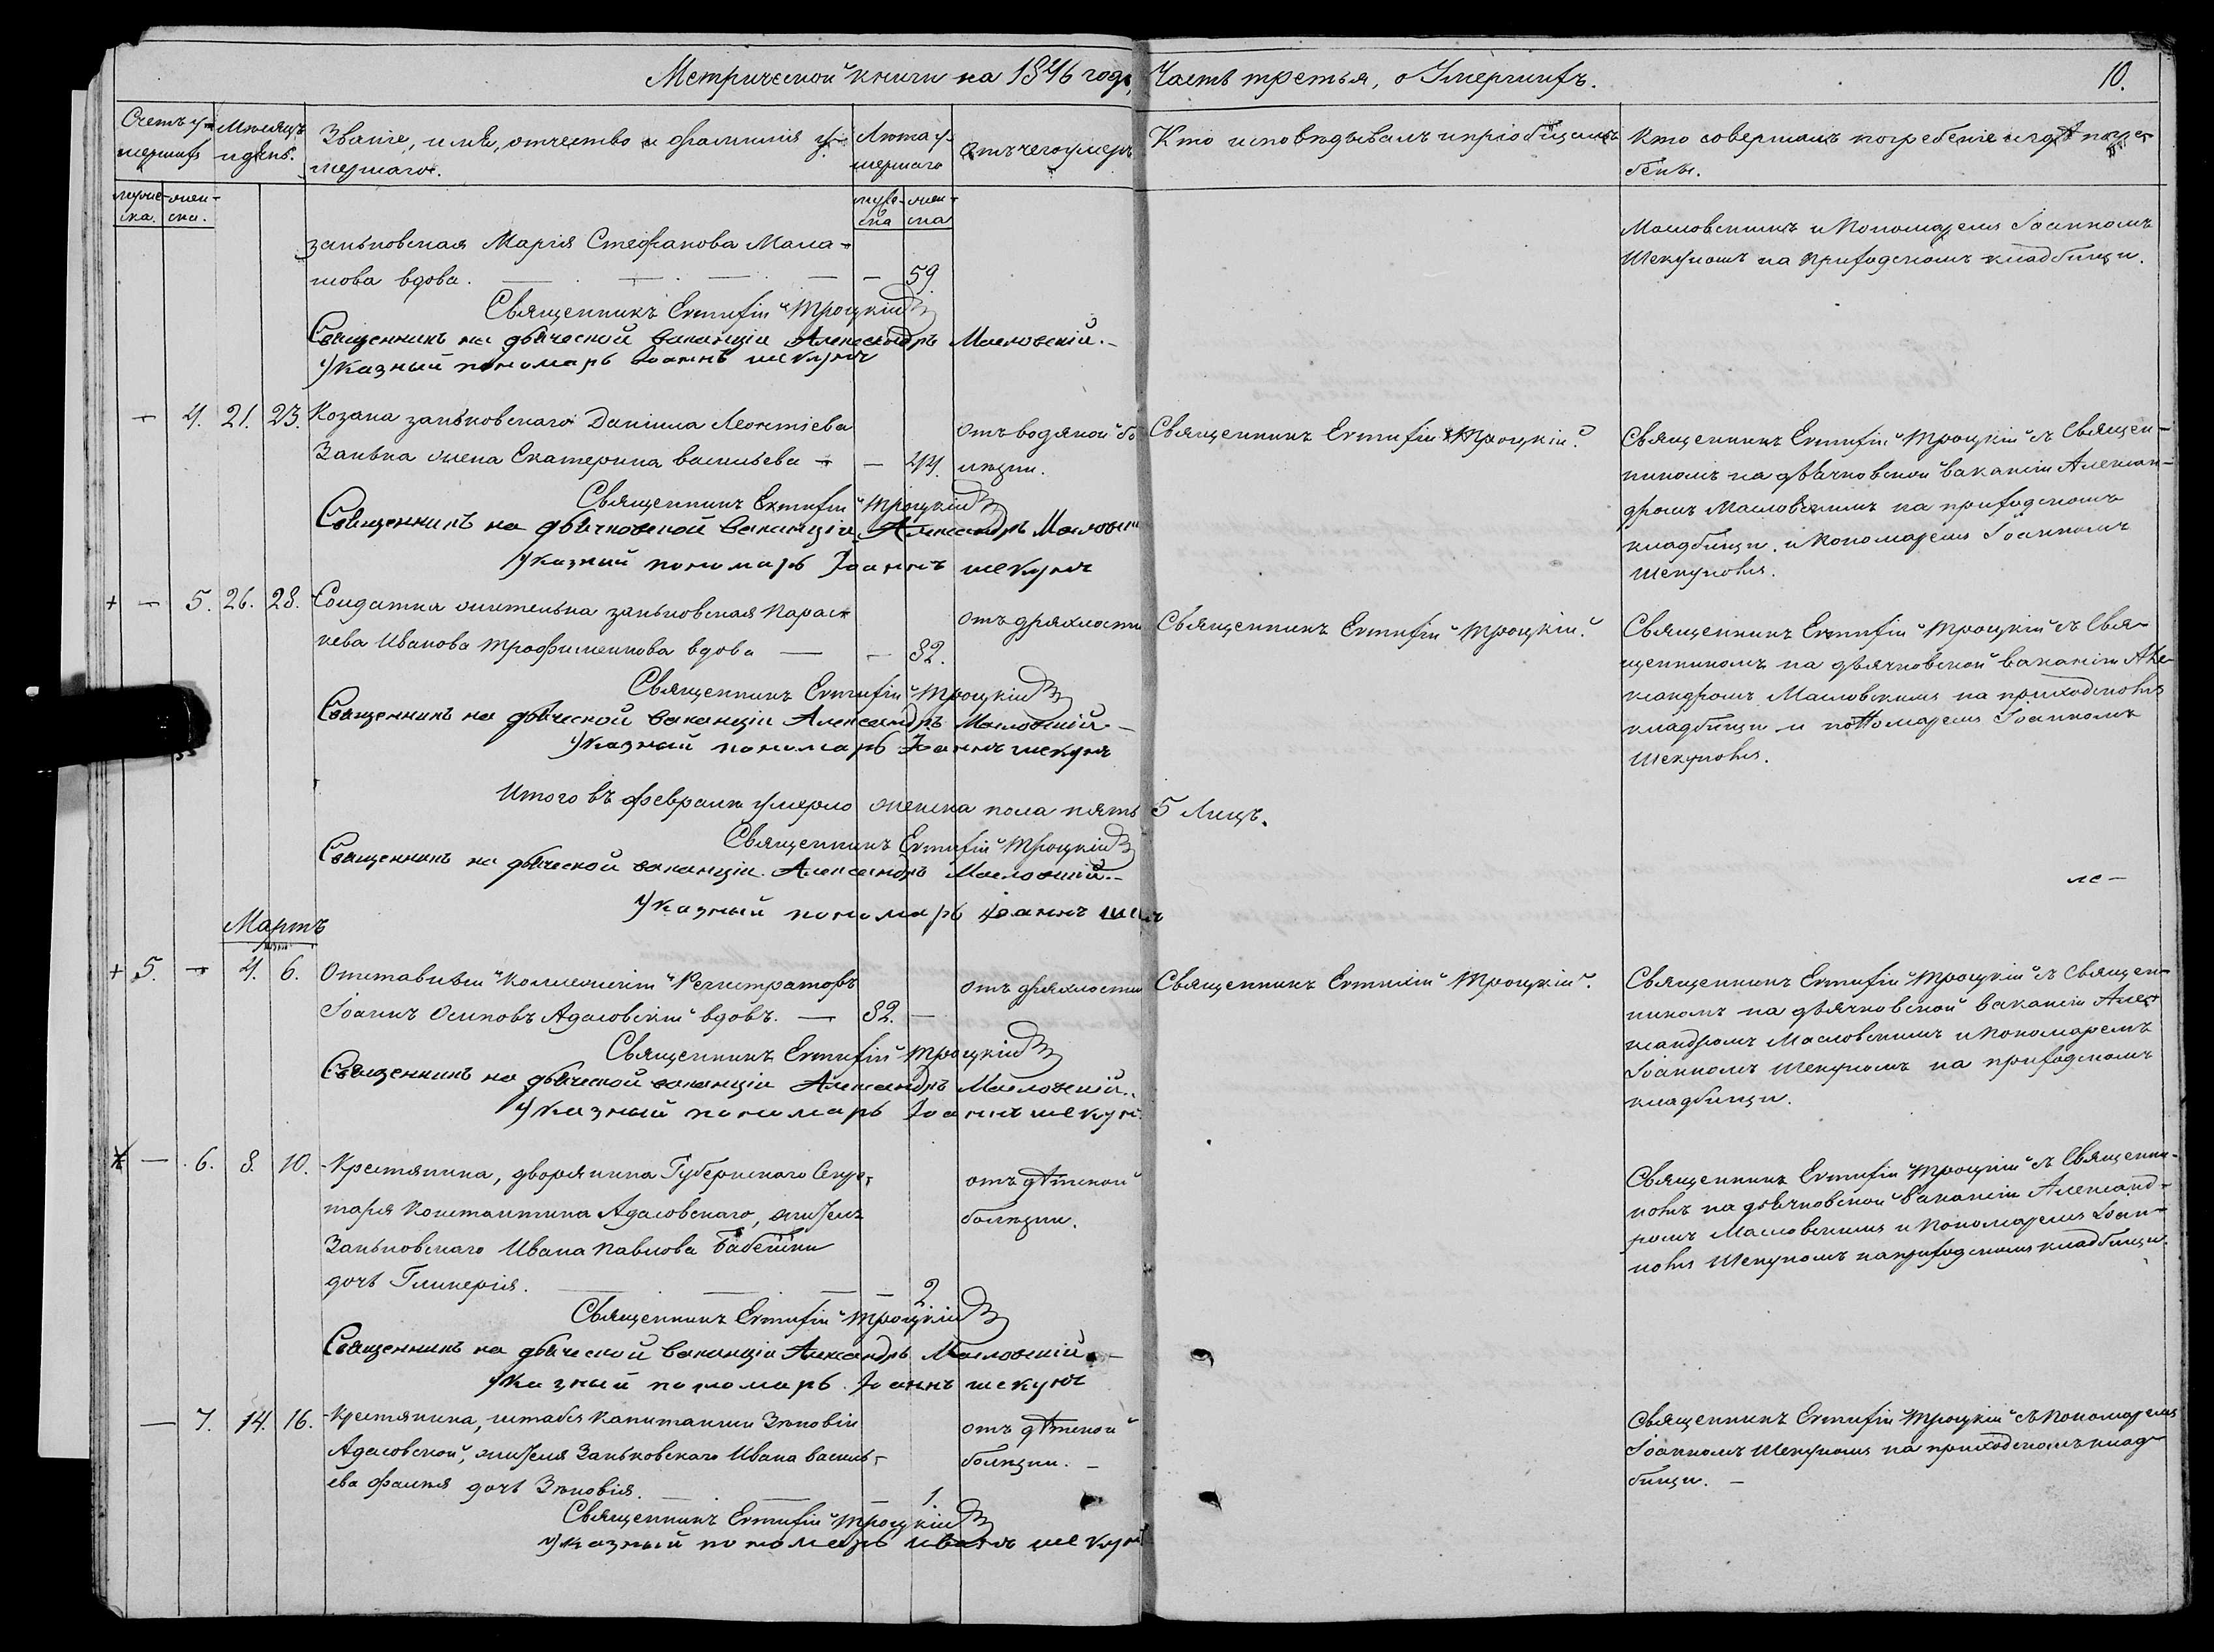 Метрической книги на 1846 годъ, Часть третья, о Умершихъ. 10.
Счетъ у- Мѣсяцъ Званіе, имя, отчество и фамилія у- Лѣта у- Отъ чего умеръ Кто исповѣдывалъ и пріобщалъ Кто совершалъ погребеніе и гдѣ погре-
мершихъ и день. мершаго. мершаго бены.
муже- жен- муже- жен-
ска. ска. ска ска
заньковская Марія Стефанова Мала-
шова вдова. — — — — — 59.
Масловскимъ и Пономаремъ Іоанномъ
Шекуномъ на приходскомъ кладбищи.
Священникъ Евтихій Троцкій
Священникъ на дьяческой ваканціи Александръ Масловскій.
Указный пономарь Іоаннъ шекунъ
— 4. 21. 23. Козака заньковскаго Даніила Леонтіева
Занька жена Екатерина васильева — — 24.
отъ водяной бо-
лѣзни.
Священникъ Евтихій Троцкій.
Священникъ Евтихій Троцкій съ Священ-
никомъ на дьячковской вакансіи Алексан-
дромъ Масловскимъ на приходскомъ
кладбищи. и Пономаремъ Іоанномъ
Шекуномъ.
Священникъ Евтихій Троцкій
Священникъ на дьячковской ваканціи Александръ Масловскій
Указный пономарь Іоаннъ шекунъ
+ — 5. 26. 28. Солдатка жителька заньковская Парас-
кева Иванова Трофименкова вдова — — 82.
отъ дряхлости
Священникъ Евтихій Троцкій.
Священникъ Евтихій Троцкій съ Свя-
щенникомъ на дьячковской вакансіи Але-
ксандромъ Масловскимъ на приходскомъ
кладбищи и пономаремъ Іоанномъ
Шекуномъ.
Священникъ Евтихій Троцкій
Священникъ на дьяческой ваканціи Александръ Масловскій
Указный пономарь Іоаннъ шекунъ
Итого въ февралѣ умерло женска пола пять 5 Лицъ.
Священникъ Евтихій Троцкій
Священникъ на дьяческой ваканціи Александръ Масловскій.
Указный пономарь Іоаннъ
Мартъ
+ 5. — 4. 6. Отставный Коллежскій Регистраторъ
Іоаннъ Осиповъ Адасовскій вдовъ. — 82. —
отъ дряхлости
Священникъ Евтихій Троцкій.
Священникъ Евтихій Троцкій съ Священ-
никомъ на дьячковской вакансіи Алек-
сандромъ Масловскимъ и Пономаремъ
Іоанномъ Шекуномъ на приходскомъ
кладбищи.
Священникъ Евтихій Троцкій
Священникъ на дьяческой ваканціи Александръ Масловскій.
Указный пономарь Іоаннъ шекунъ
— 6. 8. 10. Крестянина, дворянина Губернскаго Секре-
таря Константина Адасовскаго, жителя
Заньковскаго Ивана Павлова Бабешки
дочь Гликерія. — — — — 2
отъ дѣтской
болѣзни.
Священникъ Евтихій Троцкій съ Священни-
комъ на дьячковской вакансіи Александ-
ромъ Масловскимъ и Пономаремъ Іоан-
номъ Шекуномъ на приходскомъ кладбищи.
Священникъ Евтихій Троцкій
Священникъ на дьяческой ваканціи Александръ Масловскій.
Указный пономарь Іоаннъ шекунъ
— 7. 14. 16. Крестянина, штабсъ Капитанши Зѣновіи
Адасовской, жителя Заньковскаго Ивана василь-
ева дочь Зѣновія. — — — 1.
отъ дѣтской
болѣзни. —
Священникъ Евтихій Троцкій съ Пономаремъ
Іоанномъ Шекуномъ на приходскомъ клад-
бищи. —
Священникъ Евтихій Троцкій
Указный пономарь Иванъ шекунъ